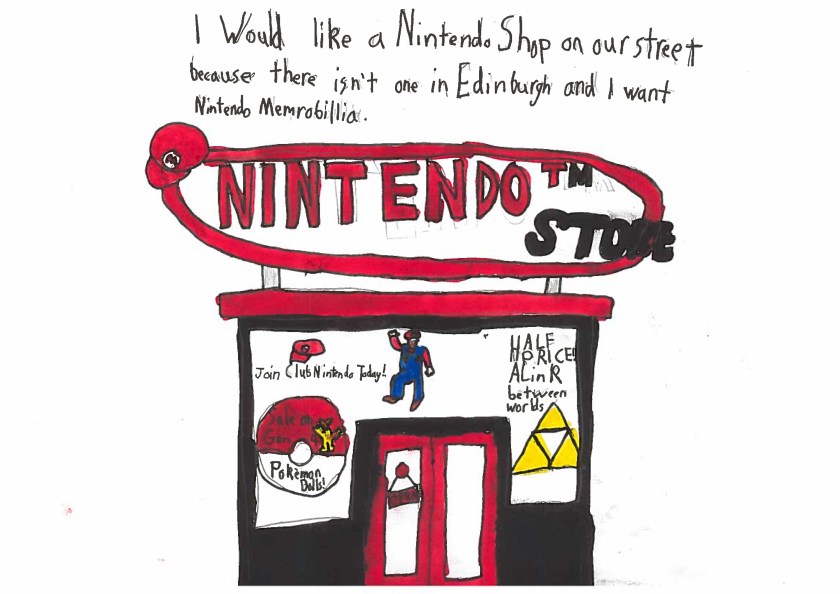 I Would like a Nintendo Shop on our street
because there isn't one in Edinburgh and I want
Nintendo Memrobillia.
M
NINTENDO™
STORE
Join Club Nintendo Today!
HALF
PRICE!
ALinR
between
worlds
Sale on
Gen 4
Pokèmon
Dolls!